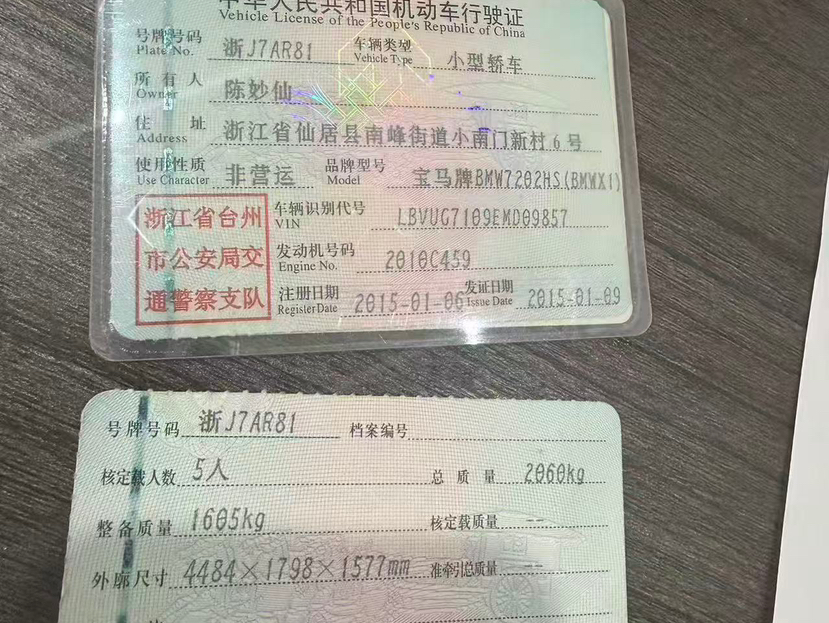 中华人民共和国机动车行驶证
Vehicle License of the People's Republic of China
号牌号码 浙J7AR81 车辆类型 小型轿车
Plate No. Vehicle Type
所有人 陈妙仙
Owner
住址 浙江省仙居县南峰街道小南门新村6号
Address
使用性质 非营运 品牌型号 宝马牌BMW7202HS(BMWX1)
Use Character Model
浙江省台州 车辆识别代号 LBVUG7109EMD09857
VIN
市公安局交 发动机号码 2010C459
Engine No.
通警察支队 注册日期 2015-01-06 发证日期 2015-01-09
Register Date Issue Date
号牌号码 浙J7AR81 档案编号
核定载人数 5人 总质量 2060kg
整备质量 1605kg 核定载质量 --
外廓尺寸 4484×1798×1577mm 准牵引总质量 --